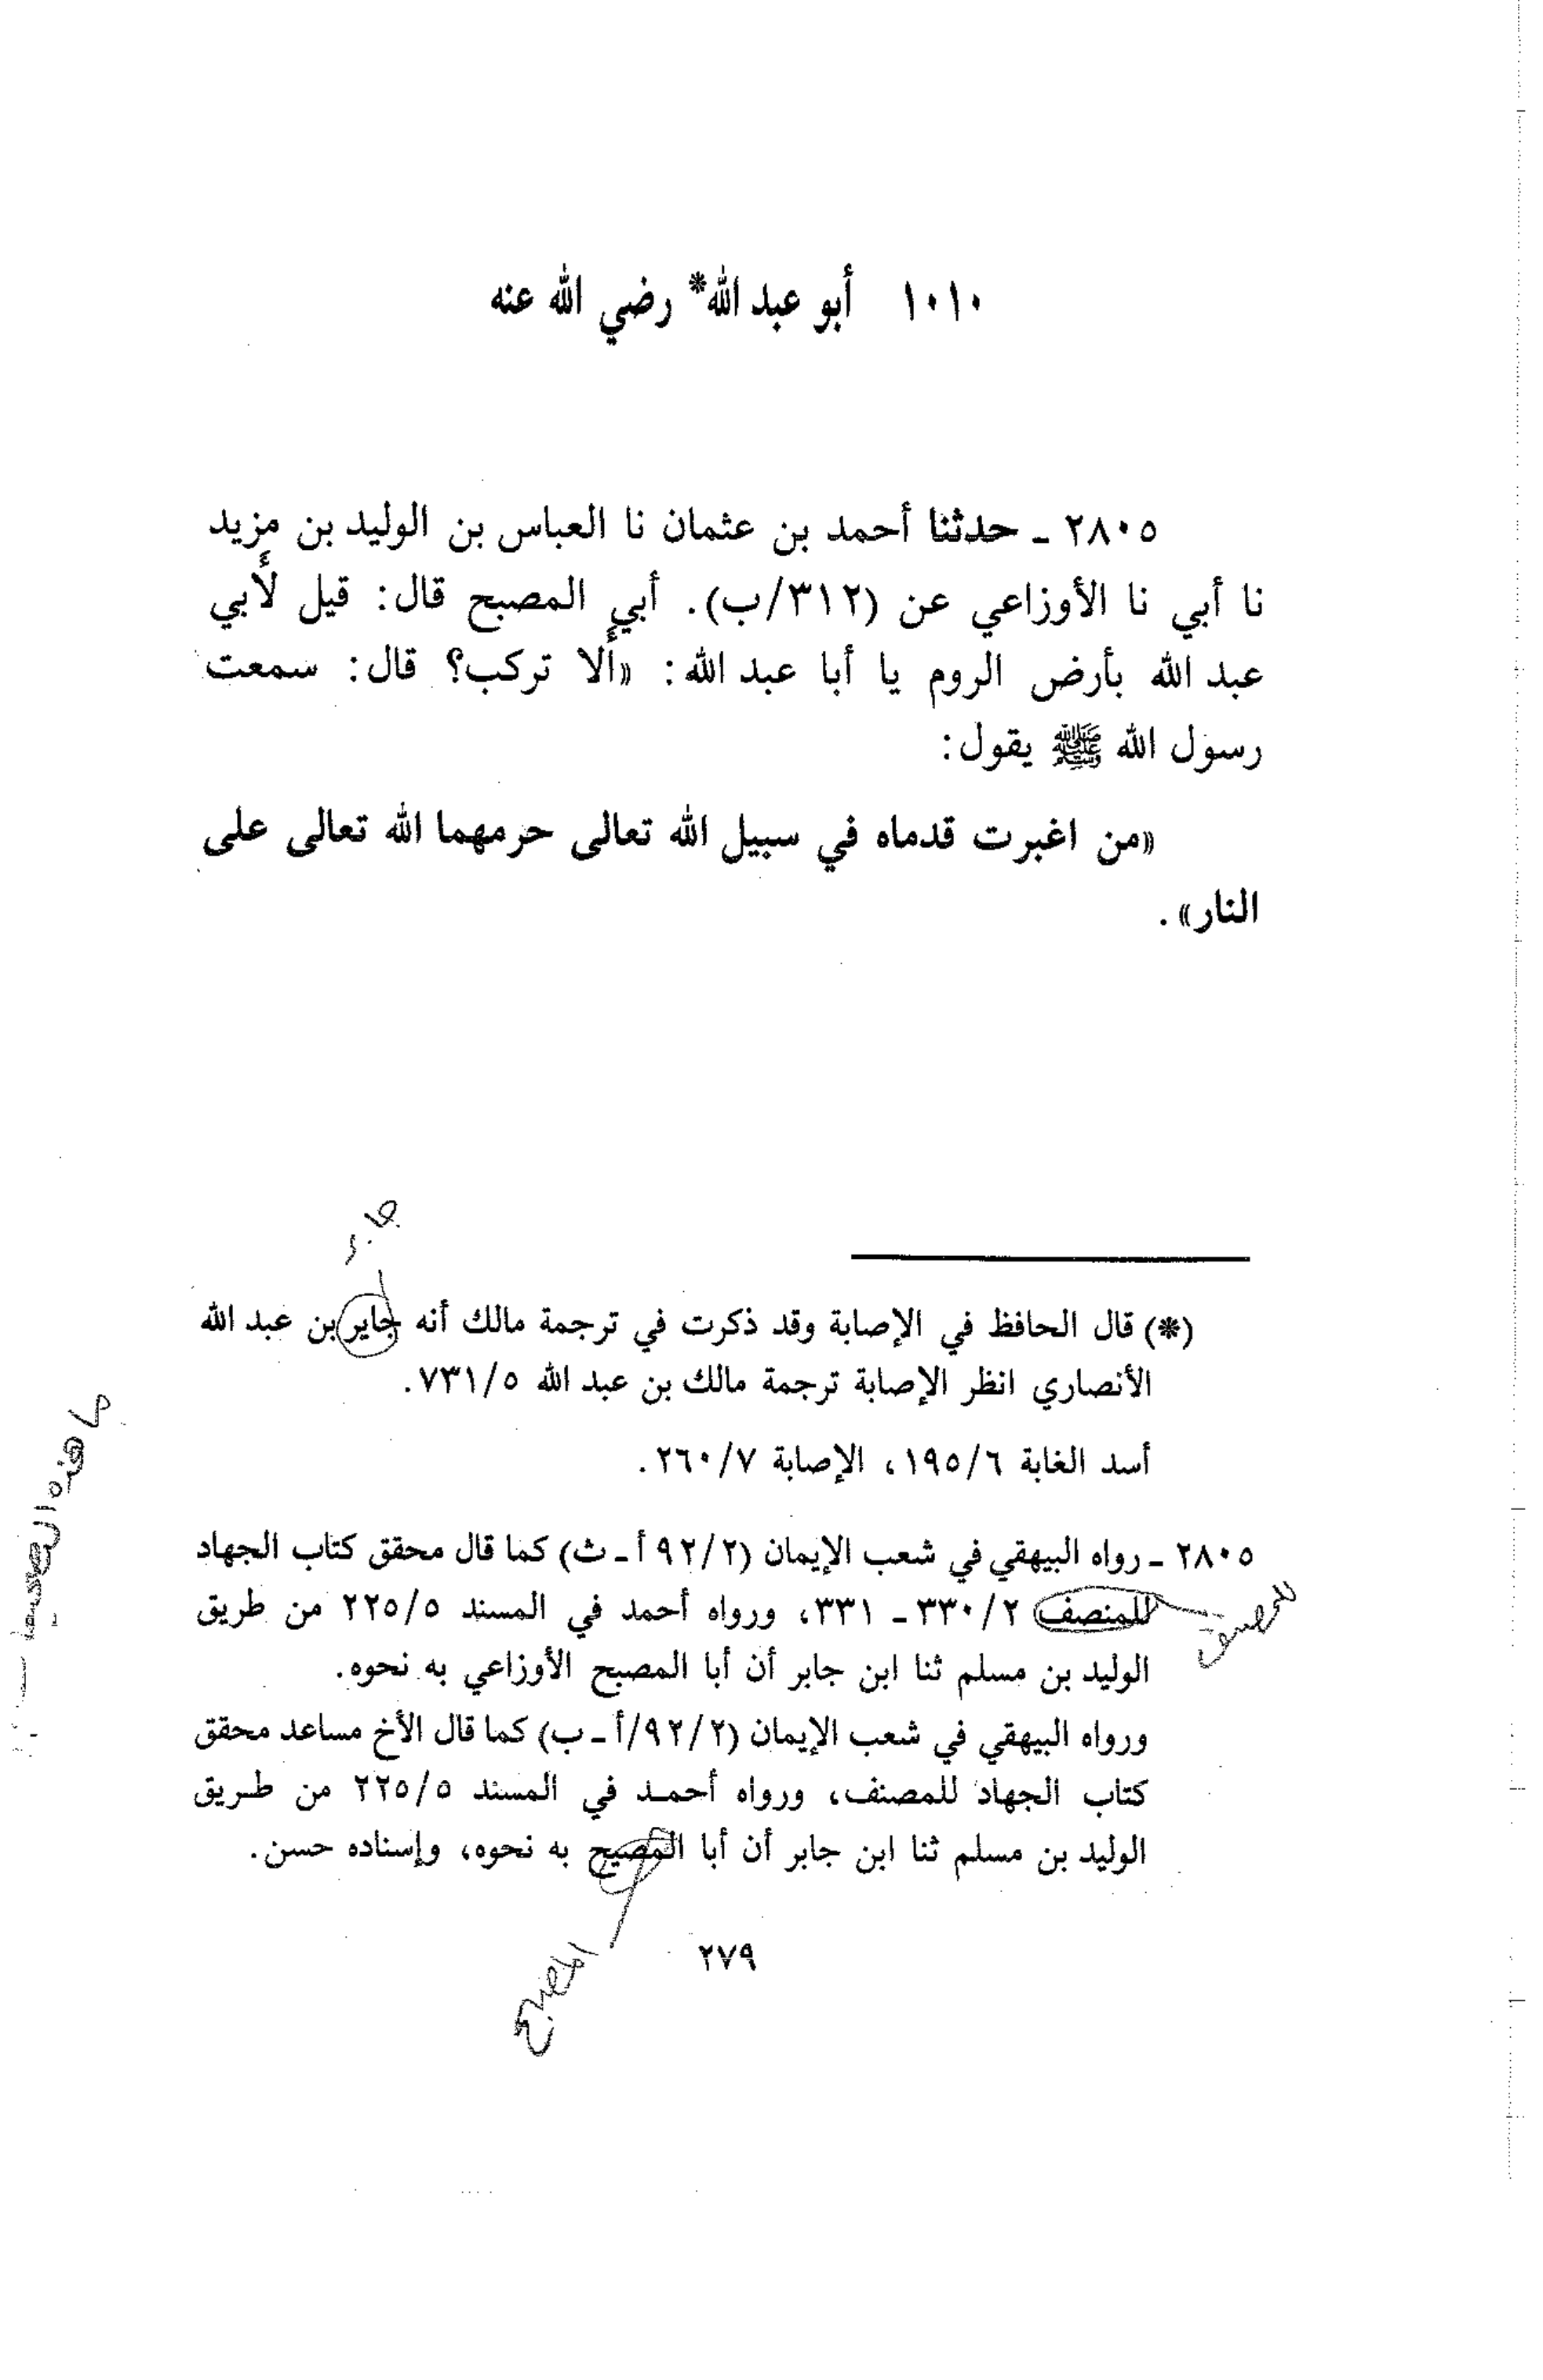 ١٠١٠ أبو عبد الله* رضي الله عنه
٢٨٠٥ ـ حدثنا أحمد بن عثمان نا العباس بن الوليد بن مزيد
نا أبي نا الأوزاعي عن (٣١٢/ب). أبي المصبح قال: قيل لأبي
عبد الله بأرض الروم يا أبا عبد الله: «ألا تركب؟ قال: سمعت
رسول الله ﷺ يقول:
«من اغبرت قدماه في سبيل الله تعالى حرمهما الله تعالى على
النار».
جابر
(*) قال الحافظ في الإصابة وقد ذكرت في ترجمة مالك أنه جاير بن عبد الله
الأنصاري انظر الإصابة ترجمة مالك بن عبد الله ٧٣١/٥.
أسد الغابة ١٩٥/٦، الإصابة ٢٦٠/٧.
٢٨٠٥ ـ رواه البيهقي في شعب الإيمان (٩٢/٢ أ ـ ث) كما قال محقق كتاب الجهاد
للمنصف ٣٣٠/٢ ـ ٣٣١، ورواه أحمد في المسند ٢٢٥/٥ من طريق
للمصنف
الوليد بن مسلم ثنا ابن جابر أن أبا المصبح الأوزاعي به نحوه.
ورواه البيهقي في شعب الإيمان (٩٢/٢/أ ـ ب) كما قال الأخ مساعد محقق
كتاب الجهاد للمصنف، ورواه أحمـد في المسند ٢٢٥/٥ من طـريق
الوليد بن مسلم ثنا ابن جابر أن أبا المصيح به نحوه، وإسناده حسن.
المصبح
٢٧٩